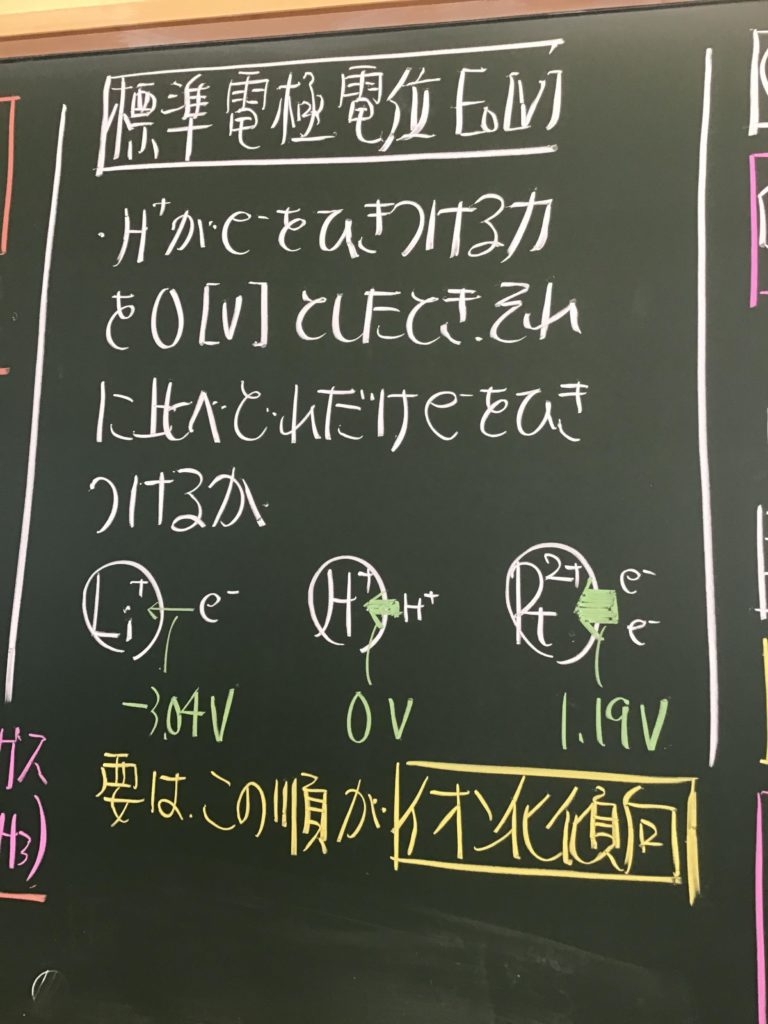 標準電極電位 E₀[V]
・H⁺がe⁻をひきつける力
を0[V]としたとき、それ
に比べどれだけe⁻をひき
つけるか
Li⁺ e⁻ H⁺ H⁺ Pt²⁺ e⁻ e⁻
-3.04V 0V 1.19V
要は、この順が イオン化傾向
ガス
H₃)